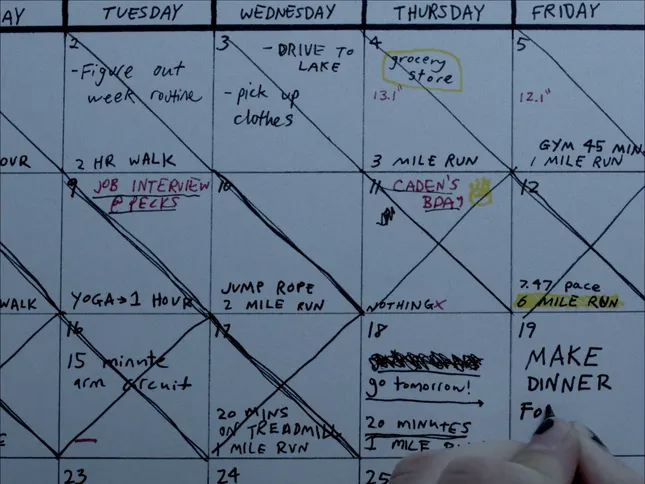 AY
TUESDAY
WEDNESDAY
THURSDAY
FRIDAY
2
- Figure out
week routine
2 HR WALK
3
- DRIVE TO
LAKE
- pick up
clothes
4
grocery
store
13.1"
3 MILE RUN
5
12.1"
GYM 45 MIN
1 MILE RUN
OUR
9
JOB INTERVIEW
@ PECKS
YOGA → 1 HOUR
10
JUMP ROPE
2 MILE RUN
11
CADEN'S
BDAY
NOTHING X
12
7.47 pace
6 MILE RUN
WALK
16
15 minute
arm circuit
17
20 MINS
ON TREADMILL
1 MILE RUN
18
go tomorrow!
20 MINUTES
1 MILE
19
MAKE
DINNER
FO
E
23
24
25